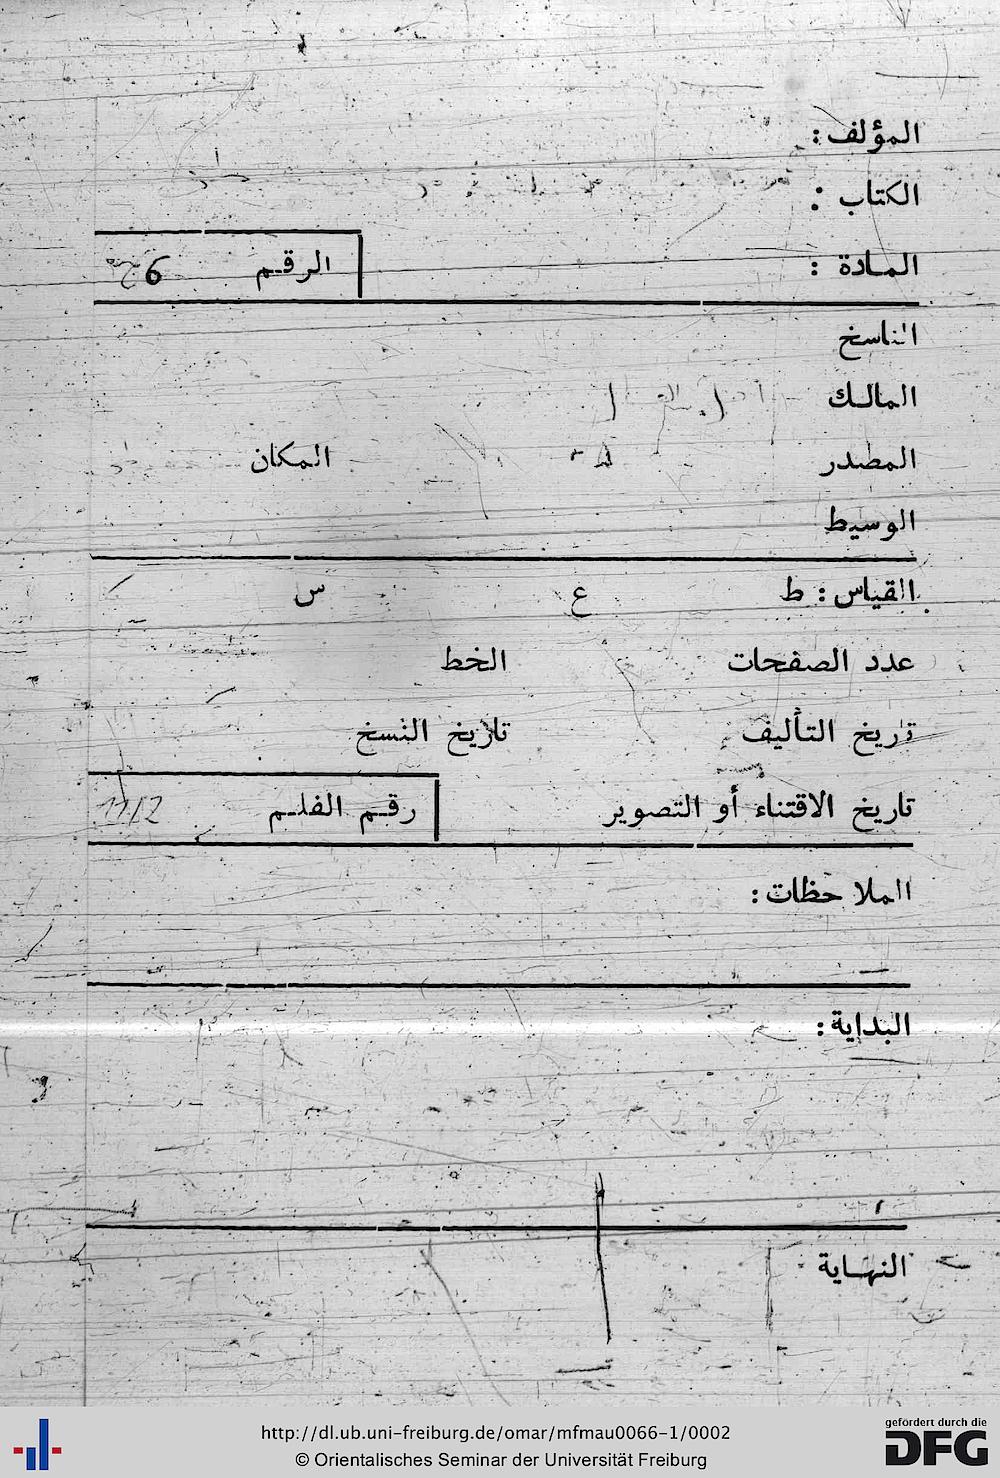 المؤلف :
الكتاب :
المادة : الرقم 6
الناسخ
المالك
المصدر المكان
الوسيط
القياس : ط ع س
عدد الصفحات الخط
تاريخ التأليف تاريخ النسخ
تاريخ الاقتناء أو التصوير رقم الفلم
الملاحظات :
البداية :
النهاية
gefördert durch die
DFG
http://dl.ub.uni-freiburg.de/omar/mfmau0066-1/0002
© Orientalisches Seminar der Universität Freiburg